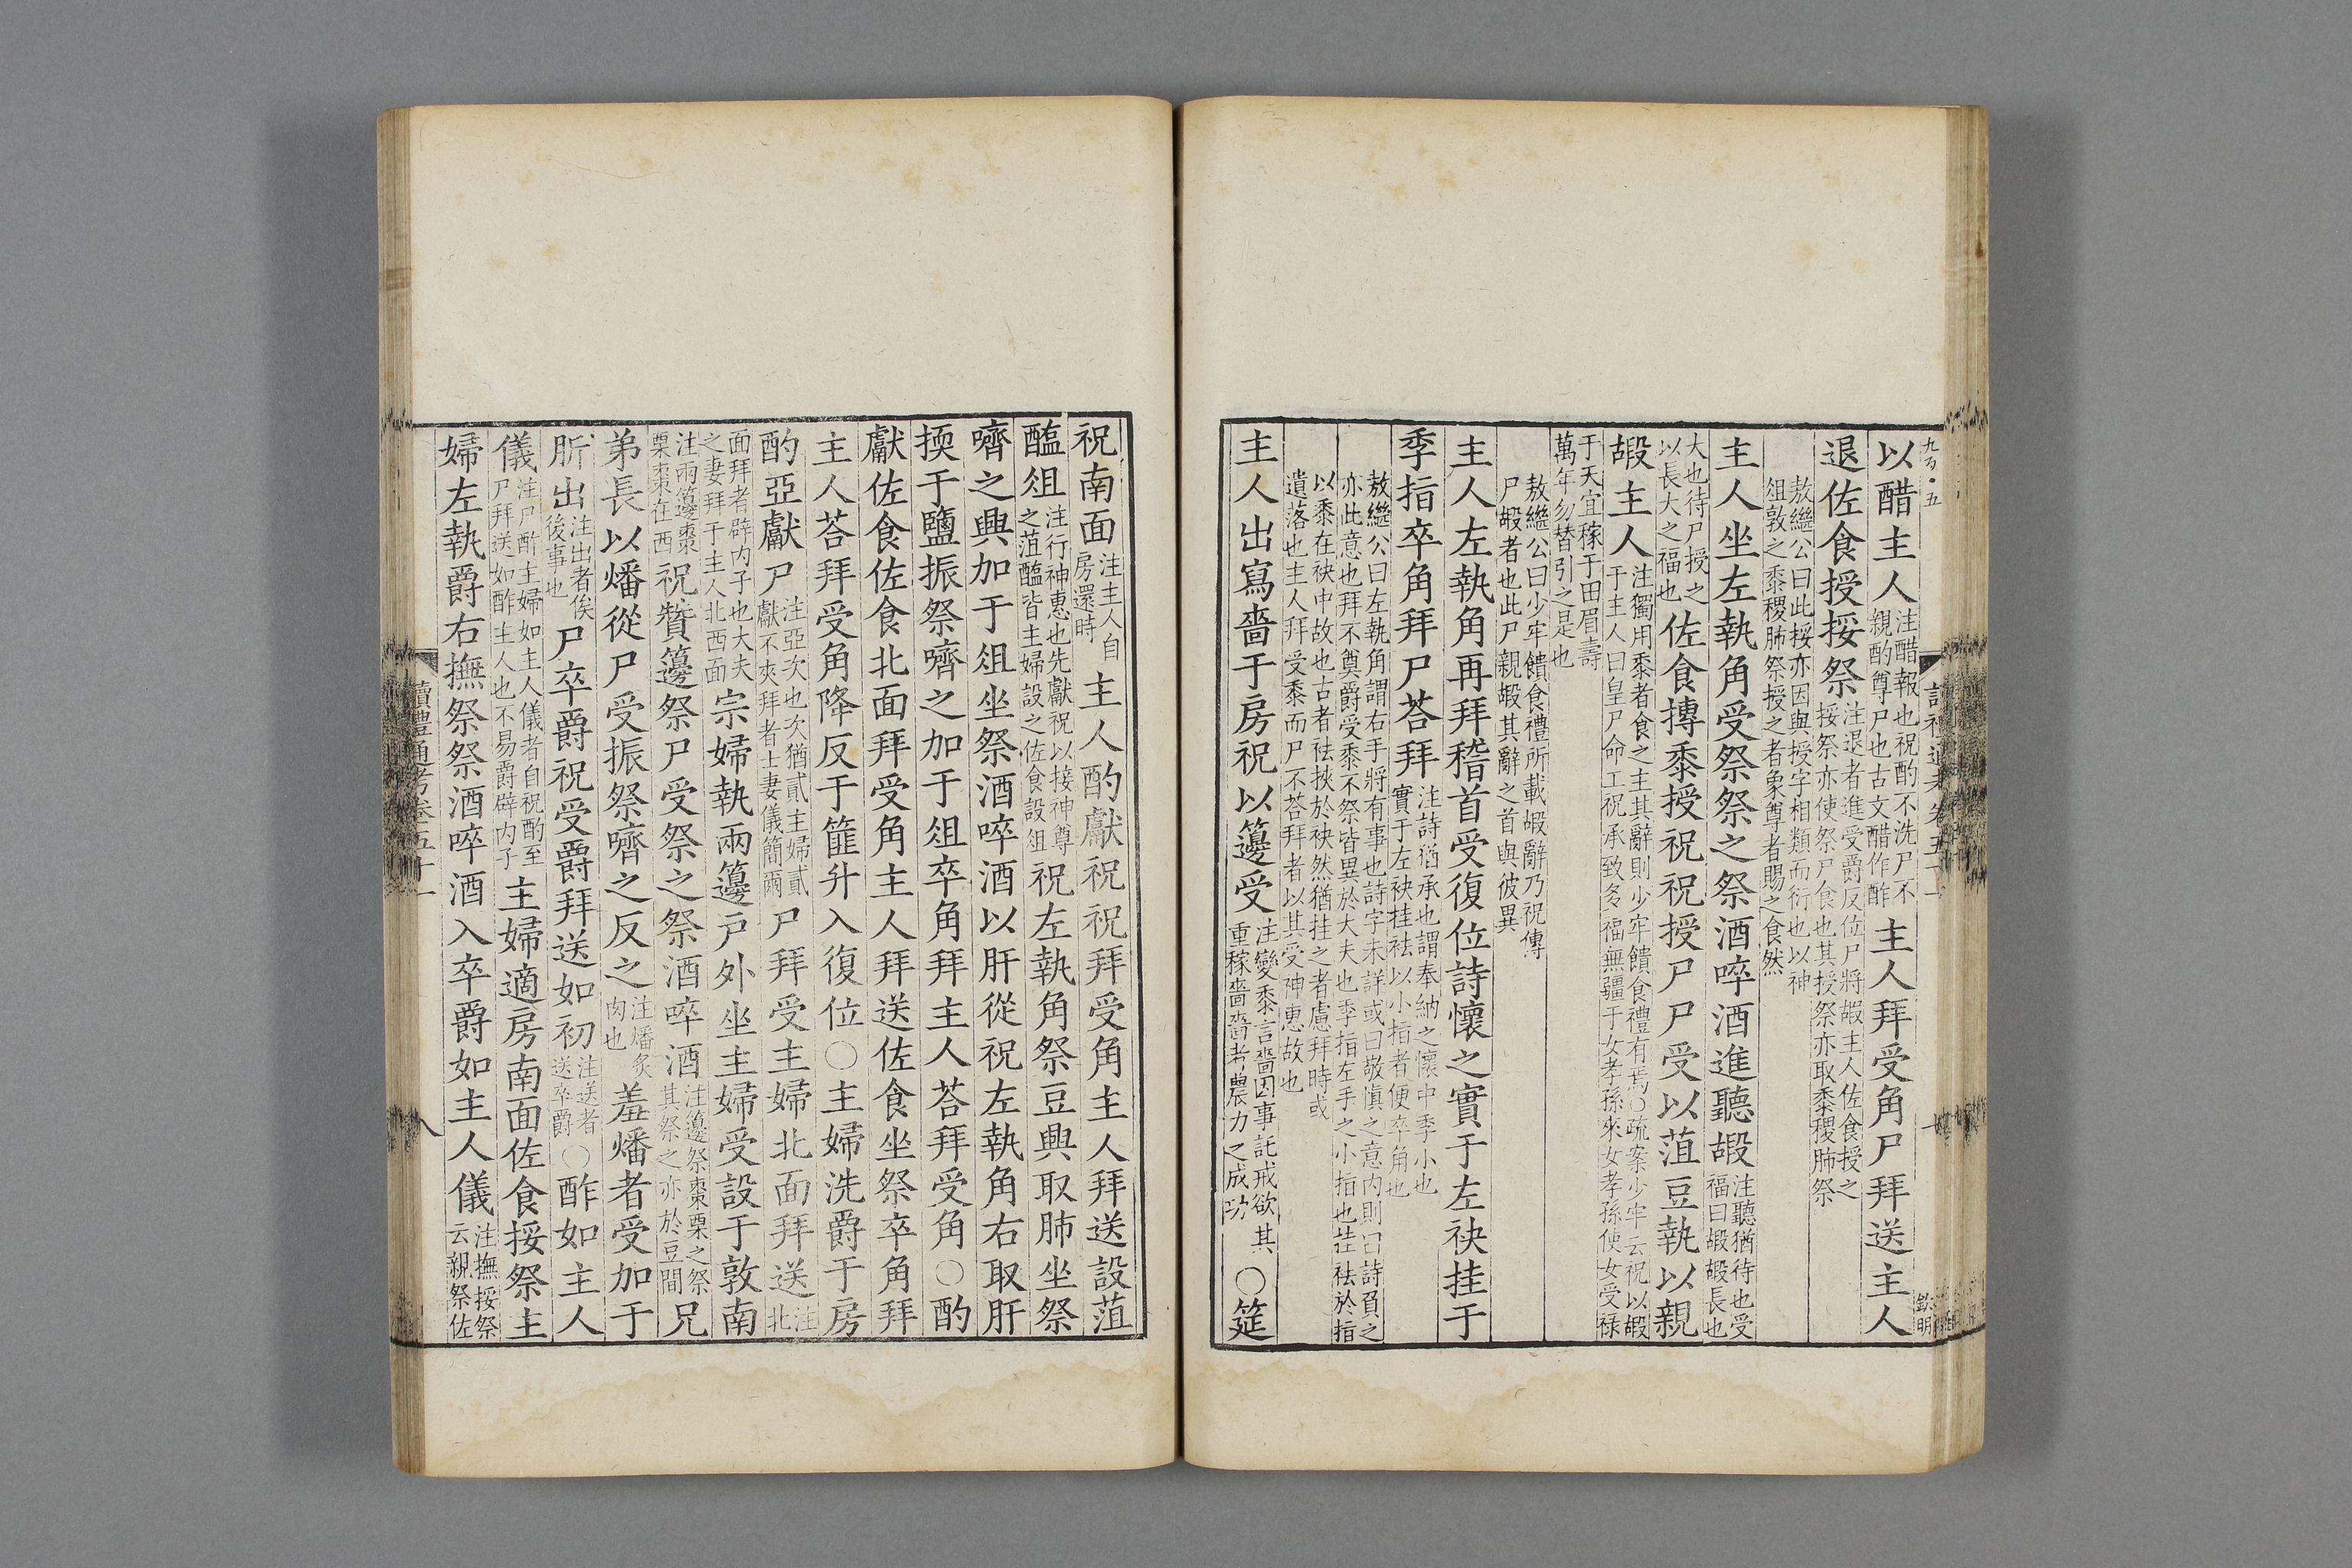 以醋主人注醋報也祝酌不洗尸不親酌尊尸也古文醋作酢主人拜受角尸拜送主人
退佐食授挼祭注退者進受爵反位尸將嘏主人佐食授之挼祭亦使祭尸食也其授祭亦取黍稷肺祭
敖繼公曰此挼亦因與授字相類而衍也以神俎敦之黍稷肺祭授之者象尊者賜之食然
主人坐左執角受祭祭之祭酒啐酒進聽嘏注聽猶待也受福曰嘏嘏長也
大也待尸授之以長大之福也佐食摶黍授祝祝授尸尸受以菹豆執以親
嘏主人注獨用黍者食之主其辭則少牢饋食禮有焉○疏案少牢云祝以嘏于主人曰皇尸命工祝承致多福無疆于女孝孫來女孝孫使女受祿
于天宜稼于田眉壽萬年勿替引之是也
敖繼公曰少牢饋食禮所載嘏辭乃祝傳尸嘏者也此尸親嘏其辭之首與彼異
主人左執角再拜稽首受復位詩懷之實于左袂挂于
季指卒角拜尸荅拜注詩猶承也謂奉納之懷中季小也實于左袂挂袪以小指者便卒角也
敖繼公曰左執角謂右手將有事也詩字未詳或曰敬慎之意內則曰詩負之亦此意也拜不奠爵受黍不祭皆異於大夫也季指左手之小指也挂袪於指
以黍在袂中故也古者袪挾於袂然猶挂之者慮拜時或遺落也主人拜受黍而尸不荅拜者以其受神惠故也
主人出寫嗇于房祝以籩受注變黍言嗇因事託戒欲其重稼嗇嗇者農力之成功○筵
祝南面注主人自房還時主人酌獻祝祝拜受角主人拜送設菹
醢俎注行神惠也先獻祝以接神尊之菹醢皆主婦設之佐食設俎祝左執角祭豆興取肺坐祭
嚌之興加于俎坐祭酒啐酒以肝從祝左執角右取肝
擩于鹽振祭嚌之加于俎卒角拜主人荅拜受角○酌
獻佐食佐食北面拜受角主人拜送佐食坐祭卒角拜
主人荅拜受角降反于篚升入復位○主婦洗爵于房
酌亞獻尸注亞次也次猶貳主婦貳獻不夾拜者士妻儀簡爾尸拜受主婦北面拜送注北
面拜者辟內子也大夫之妻拜于主人北西面宗婦執兩籩戶外坐主婦受設于敦南
注兩籩棗栗棗在西祝贊籩祭尸受祭之祭酒啐酒注籩祭棗栗之祭其祭之亦於豆間兄
弟長以燔從尸受振祭嚌之反之注燔炙肉也羞燔者受加于
肵出注出者俟後事也尸卒爵祝受爵拜送如初注送者送卒爵○酢如主人
儀注尸酢主婦如主人儀者自祝酌至尸拜送如酢主人也不易爵辟內子主婦適房南面佐食挼祭主
婦左執爵右撫祭祭酒啐酒入卒爵如主人儀注撫挼祭云親祭佐
讀禮通考卷五十一
八